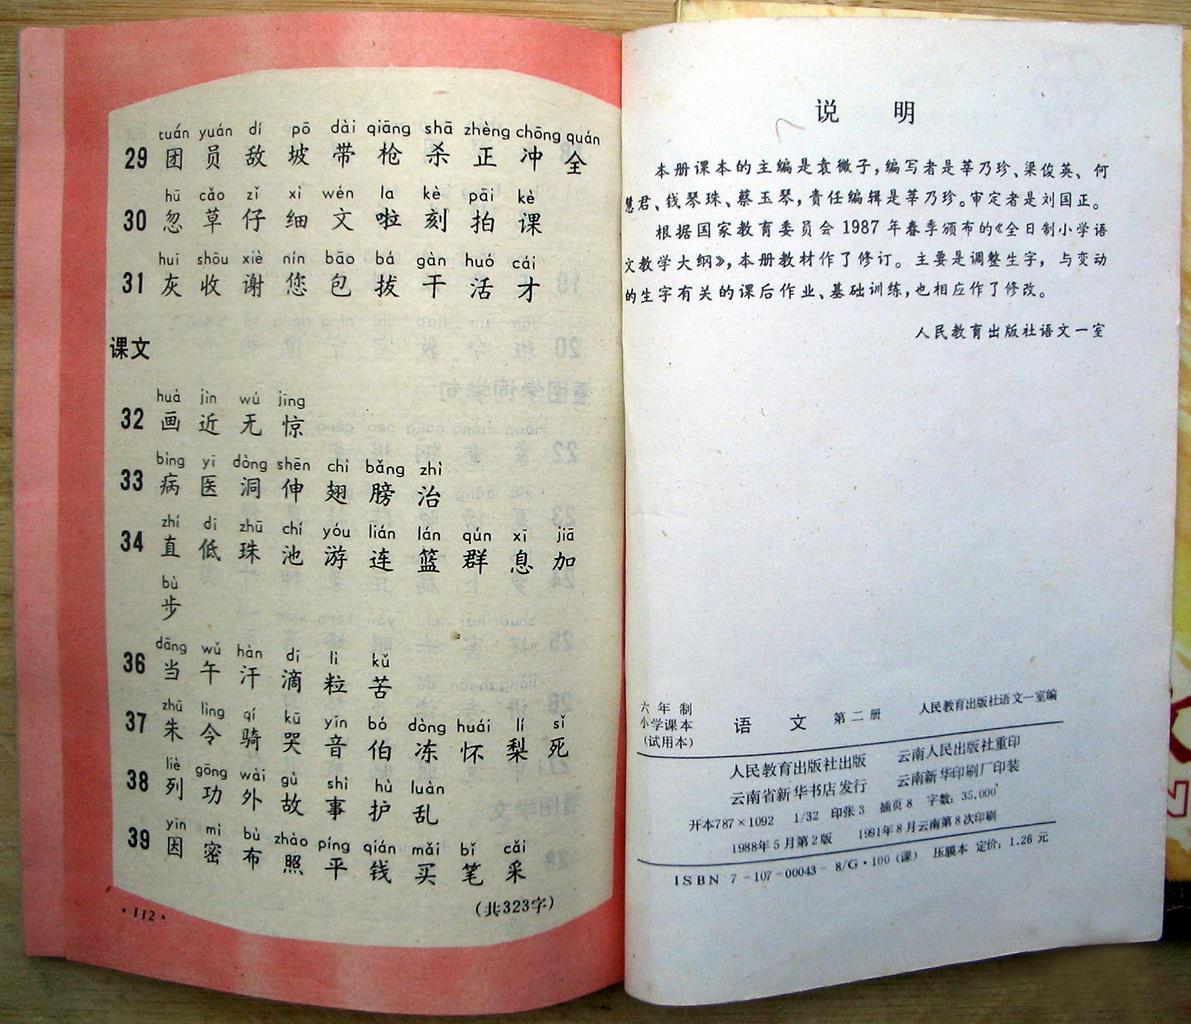 tuán yuán dí pō dài qiāng shā zhèng chōng quán
29 团 员 敌 坡 带 枪 杀 正 冲 全
hū cǎo zǐ xì wén la kè pāi kè
30 忽 草 仔 细 文 啦 刻 拍 课
huī shōu xiè nín bāo bá gàn huó cái
31 灰 收 谢 您 包 拔 干 活 才
课文
huà jìn wú jīng
32 画 近 无 惊
bìng yī dòng shēn chì bǎng zhì
33 病 医 洞 伸 翅 膀 治
zhí dī zhū chí yóu lián lán qún xī jiā
34 直 低 珠 池 游 连 篮 群 息 加
bù
步
dāng wǔ hàn dī lì kǔ
36 当 午 汗 滴 粒 苦
zhū lìng qí kū yīn bó dòng huái lí sǐ
37 朱 令 骑 哭 音 伯 冻 怀 梨 死
liè gōng wài gù shì hù luàn
38 列 功 外 故 事 护 乱
yīn mì bù zhào píng qián mǎi bǐ cǎi
39 因 密 布 照 平 钱 买 笔 采
(共323字)
·112·
说 明
本册课本的主编是袁微子，编写者是莘乃珍、梁俊英、何
慧君、钱琴珠、蔡玉琴，责任编辑是莘乃珍。审定者是刘国正。
根据国家教育委员会1987年春季颁布的《全日制小学语
文教学大纲》，本册教材作了修订。主要是调整生字，与变动
的生字有关的课后作业、基础训练，也相应作了修改。
人民教育出版社语文一室
六年制
小学课本
(试用本)
语 文 第二册 人民教育出版社语文一室编
人民教育出版社出版 云南人民出版社重印
云南省新华书店发行 云南新华印刷厂印装
开本787×1092 1/32 印张3 插页8 字数：35,000
1988年5月第2版 1991年8月云南第8次印刷
ISBN 7-107-00043-8/G·100(课) 压膜本 定价：1.26元